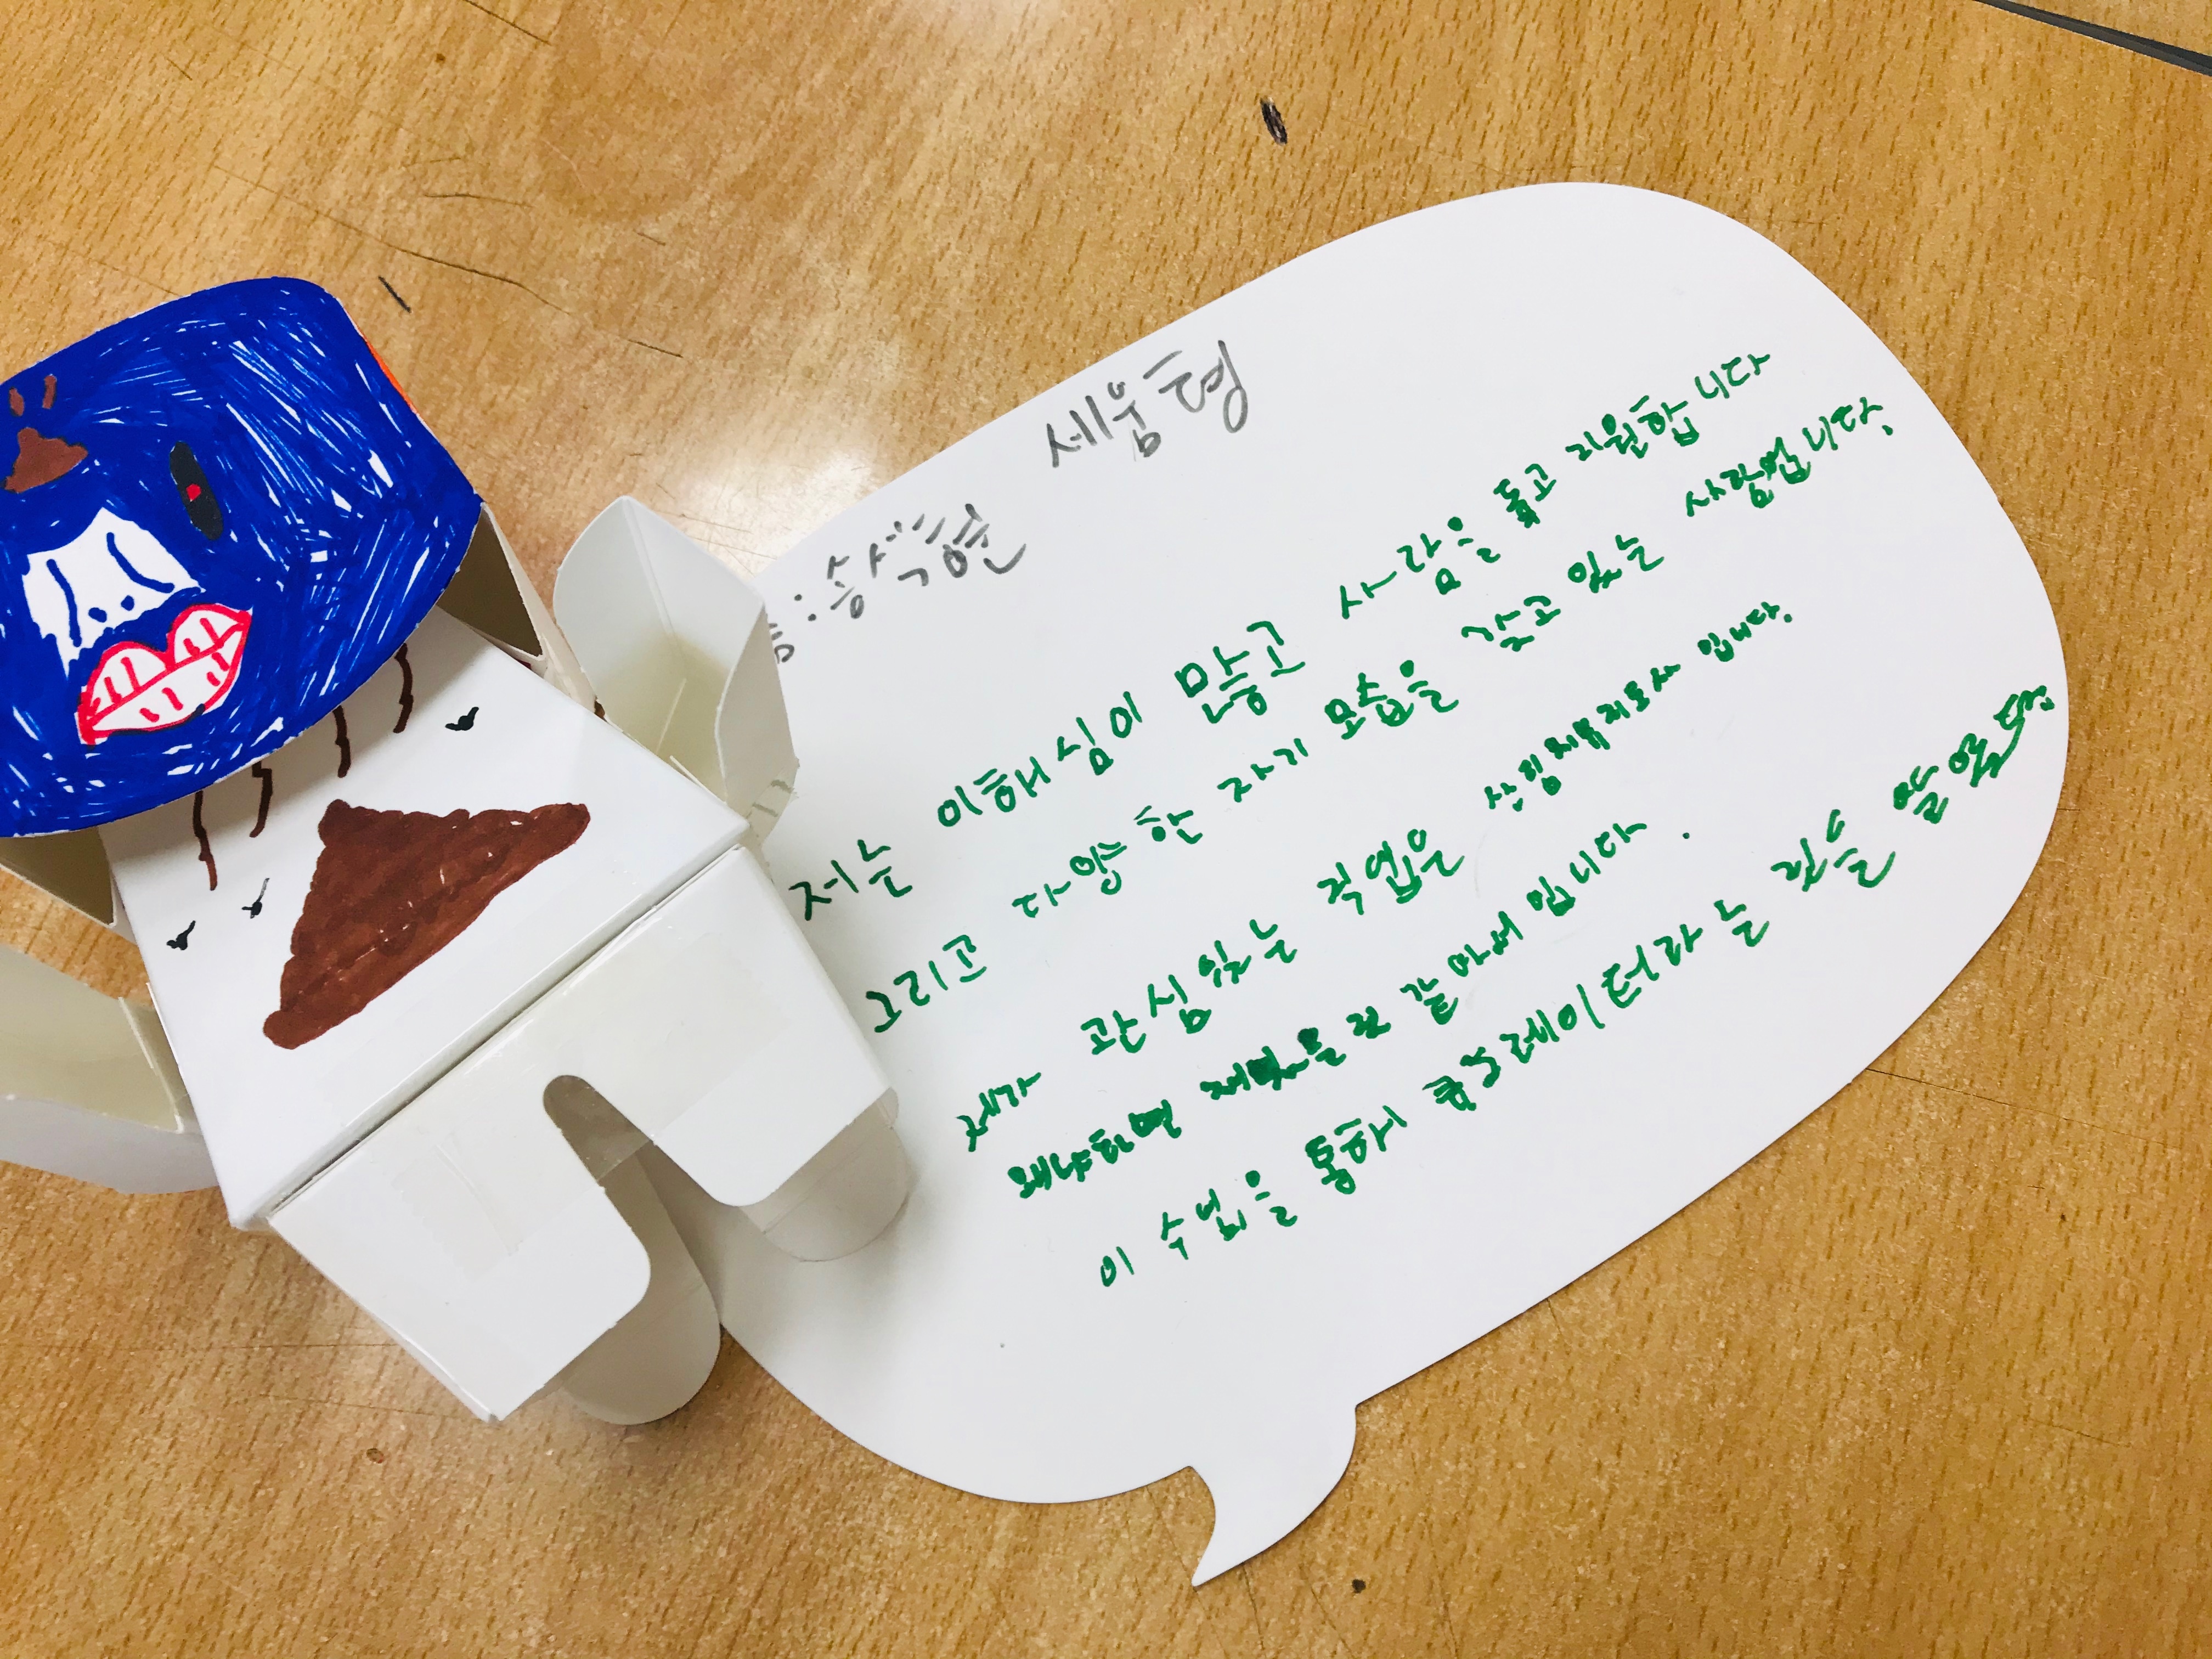 세움형
: 송석현
저는 이해심이 많고 사람을 돕고 지원합니다
그리고 다양한 자기 모습을 갖고 있는 사람입니다.
제가 관심있는 직업은 산림치유지도사 입니다.
왜냐하면 재밌을 것 같아서 입니다.
이 수업을 통해 큐스레이터라는 것을 알았다.